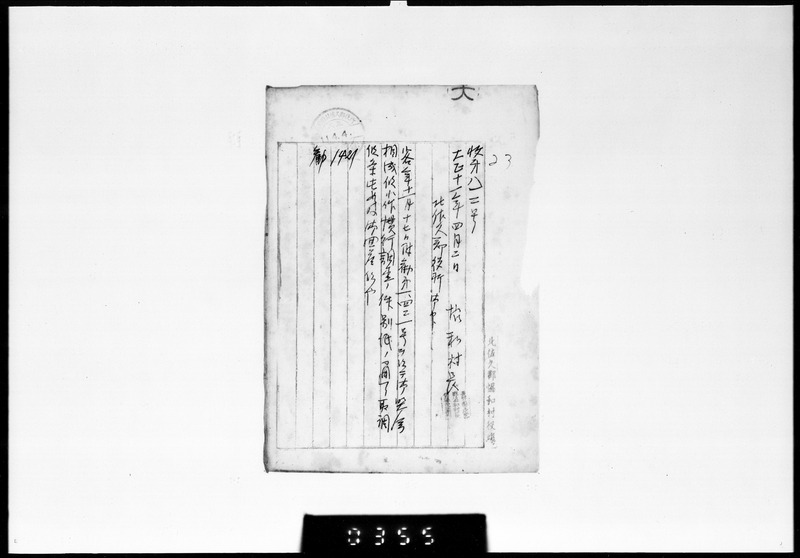 大
23
協第八一二号
大正十一年四月二日
協和村長
北佐久郡役所御中
客年十一月十七日付勧第一四二一号ヲ以テ御照会
相成候小作慣行調査ノ件別紙ノ通了取調
候条此段及御回答候也
勧 1421
11.4.4
北佐久郡協和村役場
0355